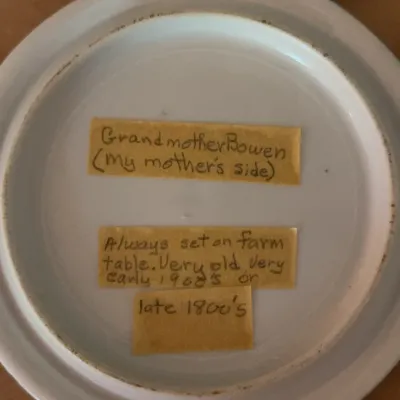 Grandmother Bowen
(My mother's side)
Always set on farm
table. Very old very
early 1900's or
late 1800's